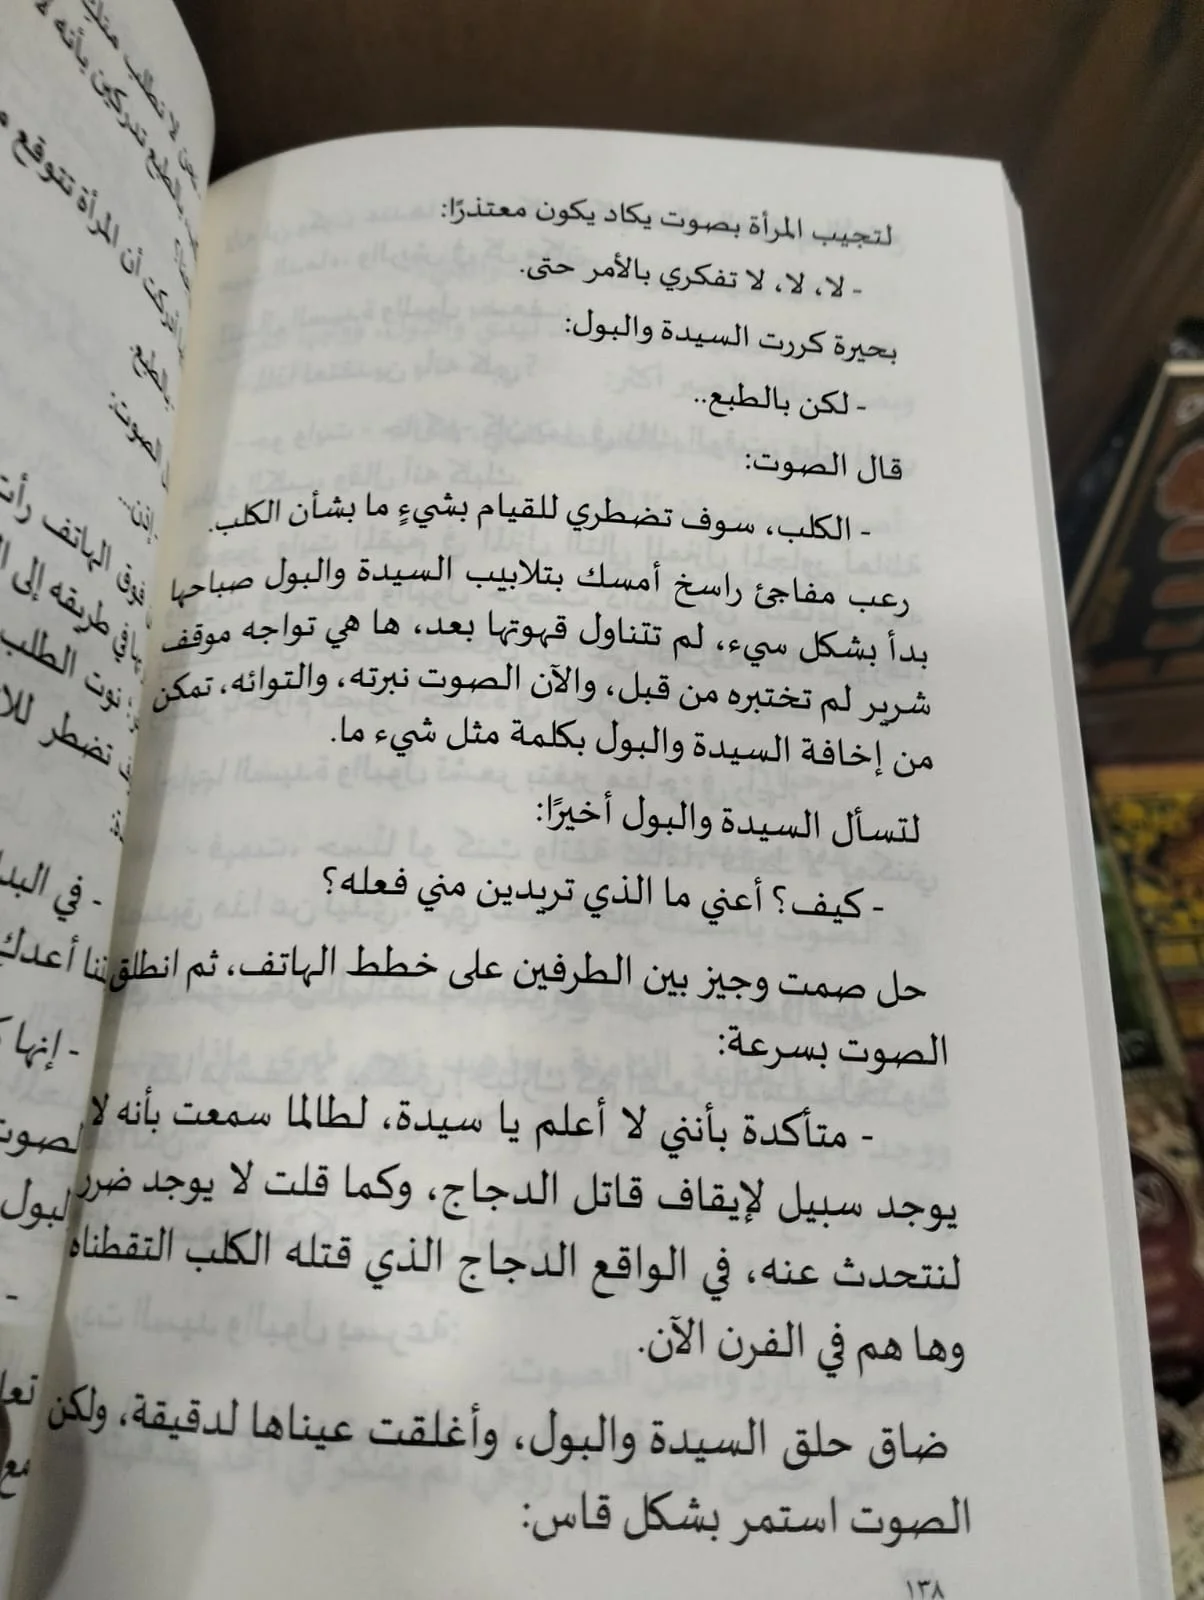 لتجيب المرأة بصوت يكاد يكون معتذرًا:
- لا، لا، لا تفكري بالأمر حتى.
بحيرة كررت السيدة والبول:
- لكن بالطبع..
قال الصوت:
- الكلب، سوف تضطري للقيام بشيءٍ ما بشأن الكلب.
رعب مفاجئ راسخ أمسك بتلابيب السيدة والبول صباحها
بدأ بشكل سيء، لم تتناول قهوتها بعد، ها هي تواجه موقف
شرير لم تختبره من قبل، والآن الصوت نبرته، والتوائه، تمكن
من إخافة السيدة والبول بكلمة مثل شيء ما.
لتسأل السيدة والبول أخيرًا:
- كيف؟ أعني ما الذي تريدين مني فعله؟
حل صمت وجيز بين الطرفين على خطط الهاتف، ثم انطلق
الصوت بسرعة:
- متأكدة بأنني لا أعلم يا سيدة، لطالما سمعت بأنه لا
يوجد سبيل لإيقاف قاتل الدجاج، وكما قلت لا يوجد ضرر
لنتحدث عنه، في الواقع الدجاج الذي قتله الكلب التقطناه
وها هم في الفرن الآن.
ضاق حلق السيدة والبول، وأغلقت عيناها لدقيقة، ولكن
الصوت استمر بشكل قاس:
١٣٨
لا تطلب
بالطبع تدركين بأنه
أدركت أن المرأة تتوقع
بالطبع.
الصوت:
إذن...
فوق الهاتف رأت
في طريقه إلى
نوت الطلب
تضطر
- في
أعدك
- إنها